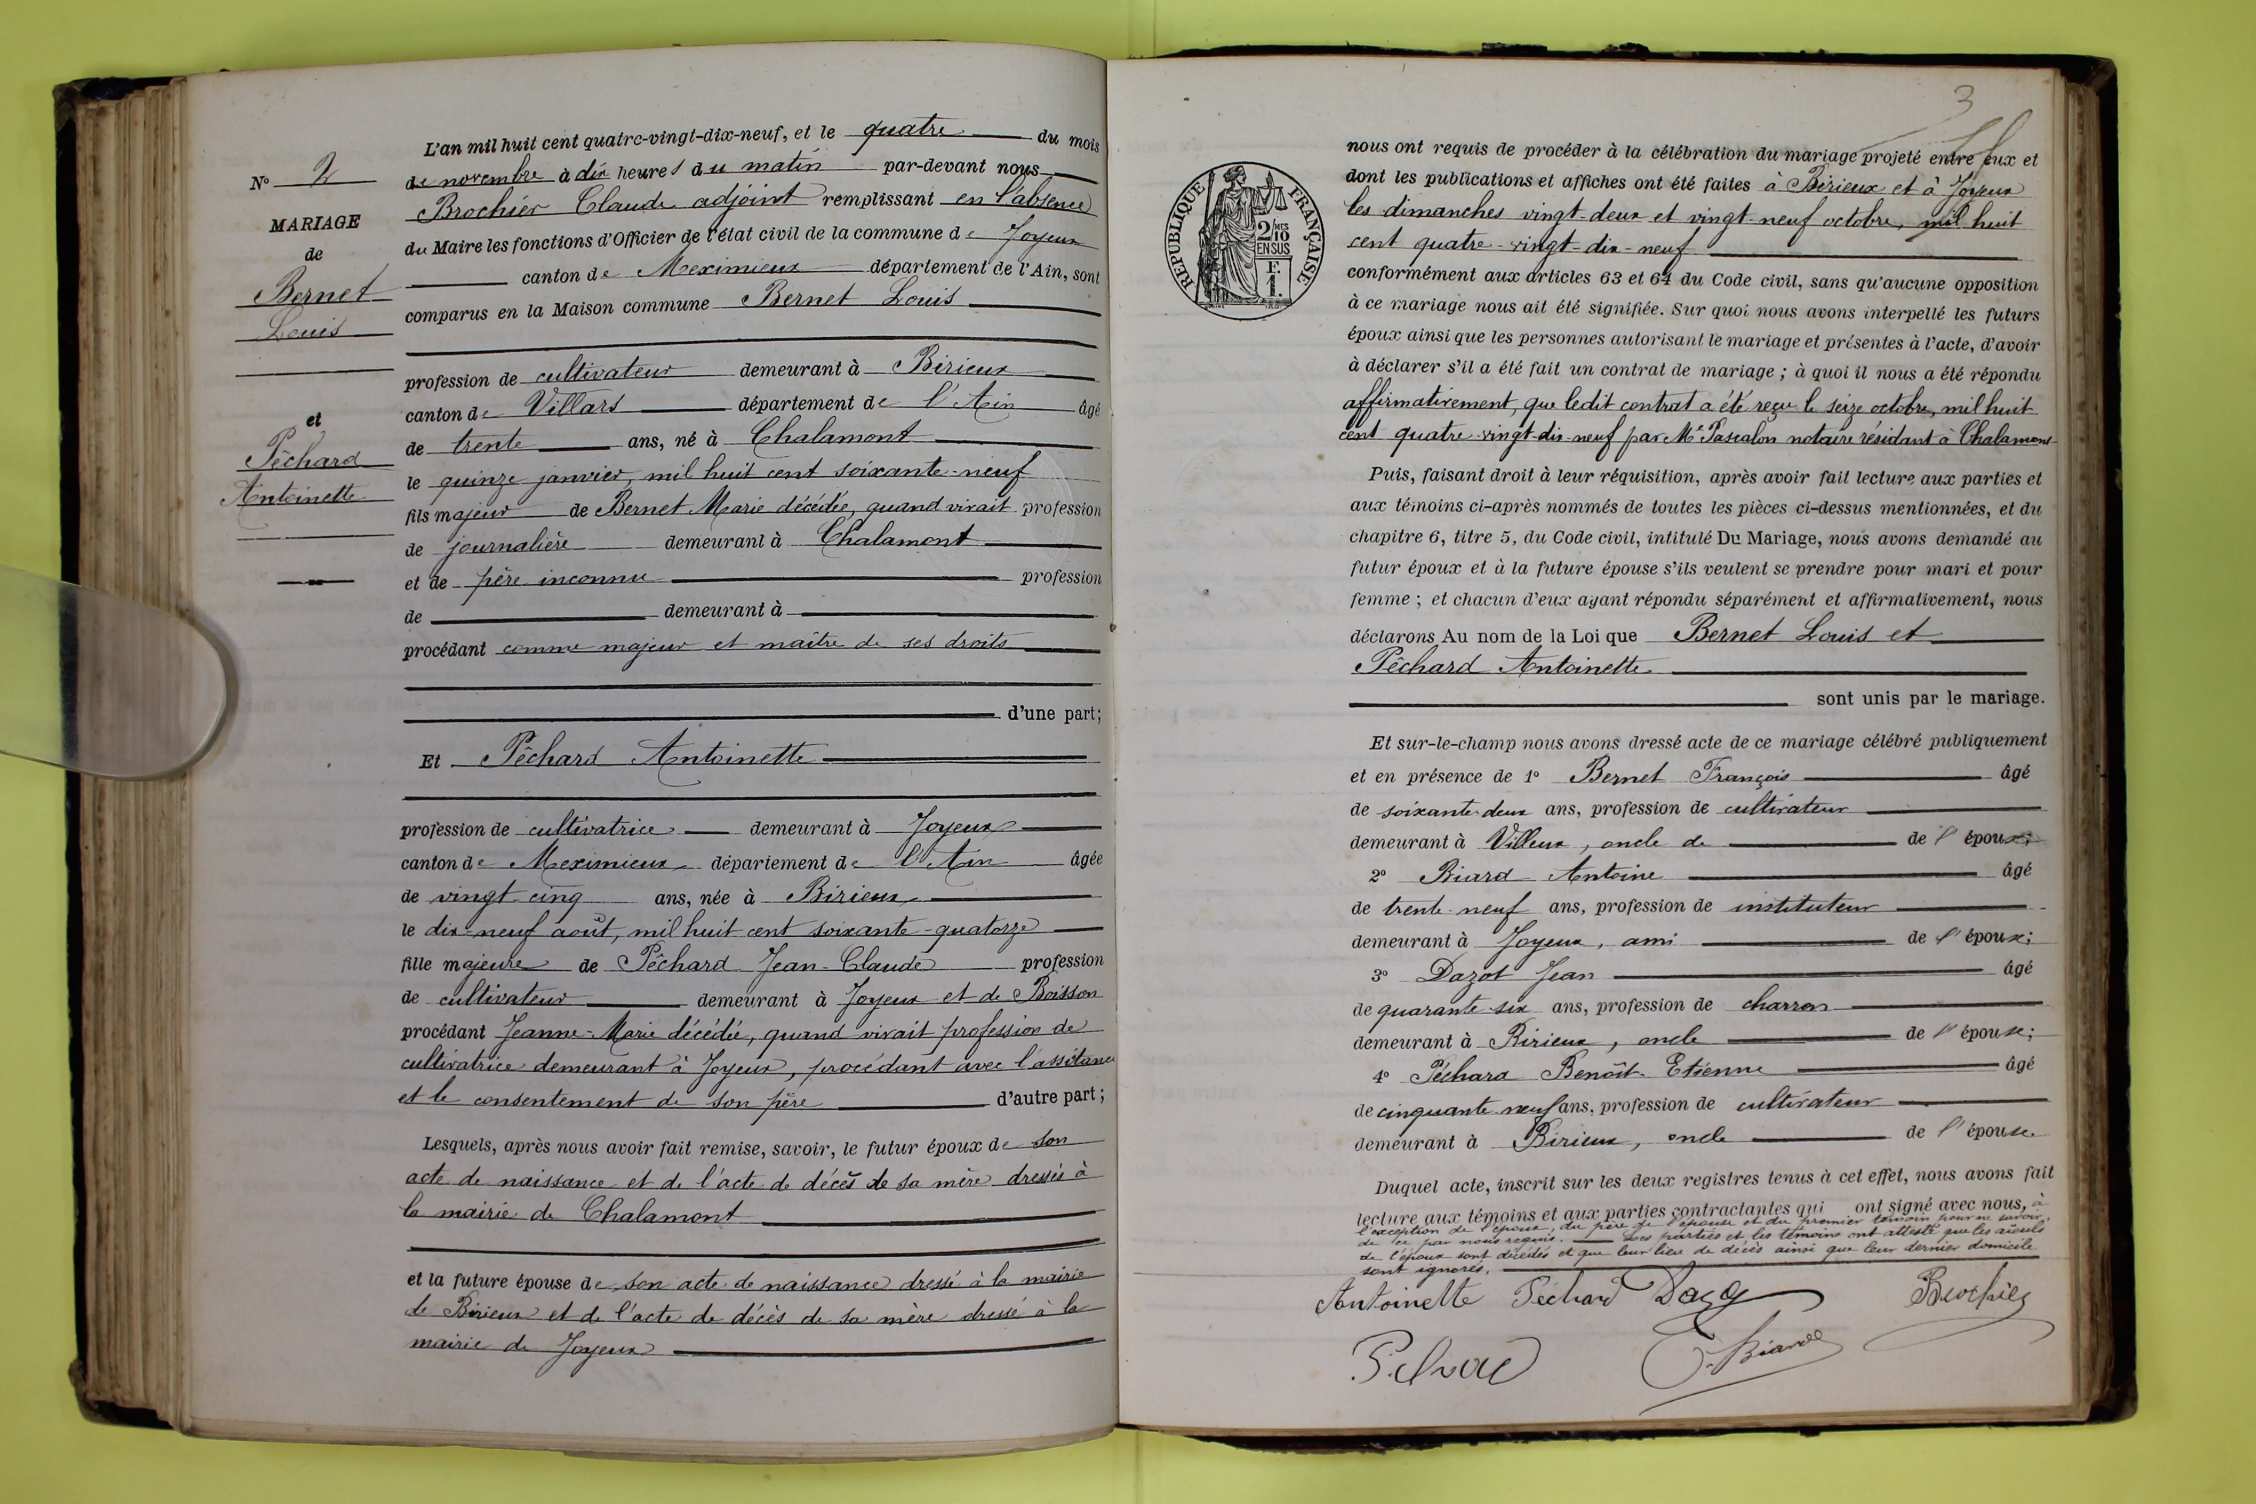 N° 2
MARIAGE
de
Bernet
Louis
et
Pêchard
Antoinette
L'an mil huit cent quatre-vingt-dix-neuf, et le quatre du mois
de novembre à dix heures du matin par-devant nous
Brochier Claude adjoint remplissant en l'absence
du Maire les fonctions d'Officier de l'état civil de la commune de Joyeux
canton de Meximieux département de l'Ain, sont
comparus en la Maison commune Bernet Louis
profession de cultivateur demeurant à Birieux
canton de Villars département de l'Ain âgé
de trente ans, né à Chalamont
le quinze janvier, mil huit cent soixante-neuf
fils majeur de Bernet Marie décédée, quand vivait profession
de journalière demeurant à Chalamont
et de père inconnu profession
de demeurant à
procédant comme majeur et maître de ses droits
d'une part;
Et Pêchard Antoinette
profession de cultivatrice demeurant à Joyeux
canton de Meximieux département de l'Ain âgée
de vingt-cinq ans, née à Birieux
le dix-neuf août, mil huit cent soixante-quatorze
fille majeure de Pêchard Jean-Claude profession
de cultivateur demeurant à Joyeux et de Boisson
procédant Jeanne-Marie décédée, quand vivait profession de
cultivatrice demeurant à Joyeux, procédant avec l'assitance
et le consentement de son père d'autre part;
Lesquels, après nous avoir fait remise, savoir, le futur époux de son
acte de naissance et de l'acte de décès de sa mère dressés à
la mairie de Chalamont
et la future épouse de son acte de naissance dressé à la mairie
de Birieux et de l'acte de décès de sa mère dressé à la
mairie de Joyeux
3
RÉPUBLIQUE FRANÇAISE
2/10 EN SUS
F. 1.
nous ont requis de procéder à la célébration du mariage projeté entre eux et
dont les publications et affiches ont été faites à Birieux et à Joyeux
les dimanches vingt-deux et vingt-neuf octobre, mil huit
cent quatre-vingt-dix-neuf
conformément aux articles 63 et 64 du Code civil, sans qu'aucune opposition
à ce mariage nous ait été signifiée. Sur quoi nous avons interpellé les futurs
époux ainsi que les personnes autorisant le mariage et présentes à l'acte, d'avoir
à déclarer s'il a été fait un contrat de mariage; à quoi il nous a été répondu
affirmativement, que ledit contrat a été reçu le seize octobre, mil huit
cent quatre-vingt-dix-neuf par Me Pascalon notaire résidant à Chalamont
Puis, faisant droit à leur réquisition, après avoir fait lecture aux parties et
aux témoins ci-après nommés de toutes les pièces ci-dessus mentionnées, et du
chapitre 6, titre 5, du Code civil, intitulé Du Mariage, nous avons demandé au
futur époux et à la future épouse s'ils veulent se prendre pour mari et pour
femme; et chacun d'eux ayant répondu séparément et affirmativement, nous
déclarons Au nom de la Loi que Bernet Louis et
Pêchard Antoinette
sont unis par le mariage.
Et sur-le-champ nous avons dressé acte de ce mariage célébré publiquement
et en présence de 1° Bernet François âgé
de soixante-deux ans, profession de cultivateur
demeurant à Villeux, oncle de de l'époux;
2° Biard Antoine âgé
de trente-neuf ans, profession de instituteur
demeurant à Joyeux, ami de l'époux;
3° Dazot Jean âgé
de quarante-six ans, profession de charron
demeurant à Birieux, oncle de l'épouse;
4° Pêchard Benoît-Etienne âgé
de cinquante-neuf ans, profession de cultivateur
demeurant à Birieux, oncle de l'épouse
Duquel acte, inscrit sur les deux registres tenus à cet effet, nous avons fait
lecture aux témoins et aux parties contractantes qui ont signé avec nous, à
l'exception de l'époux, du père de l'épouse et du premier témoin pour ne savoir,
de ce par nous requis. Les parties et les témoins ont attesté que les aïeuls
de l'époux sont décédés et que leur lieu de décès ainsi que leur dernier domicile
sont ignorés.
Antoinette Péchard Brochier
Biard